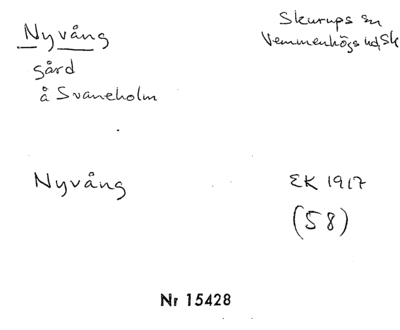 Nyvång
gård
å Svaneholm
Skurups sn
Vemmenhögs hd, Sk
Nyvång
EK 1917
(58)
Nr 15428